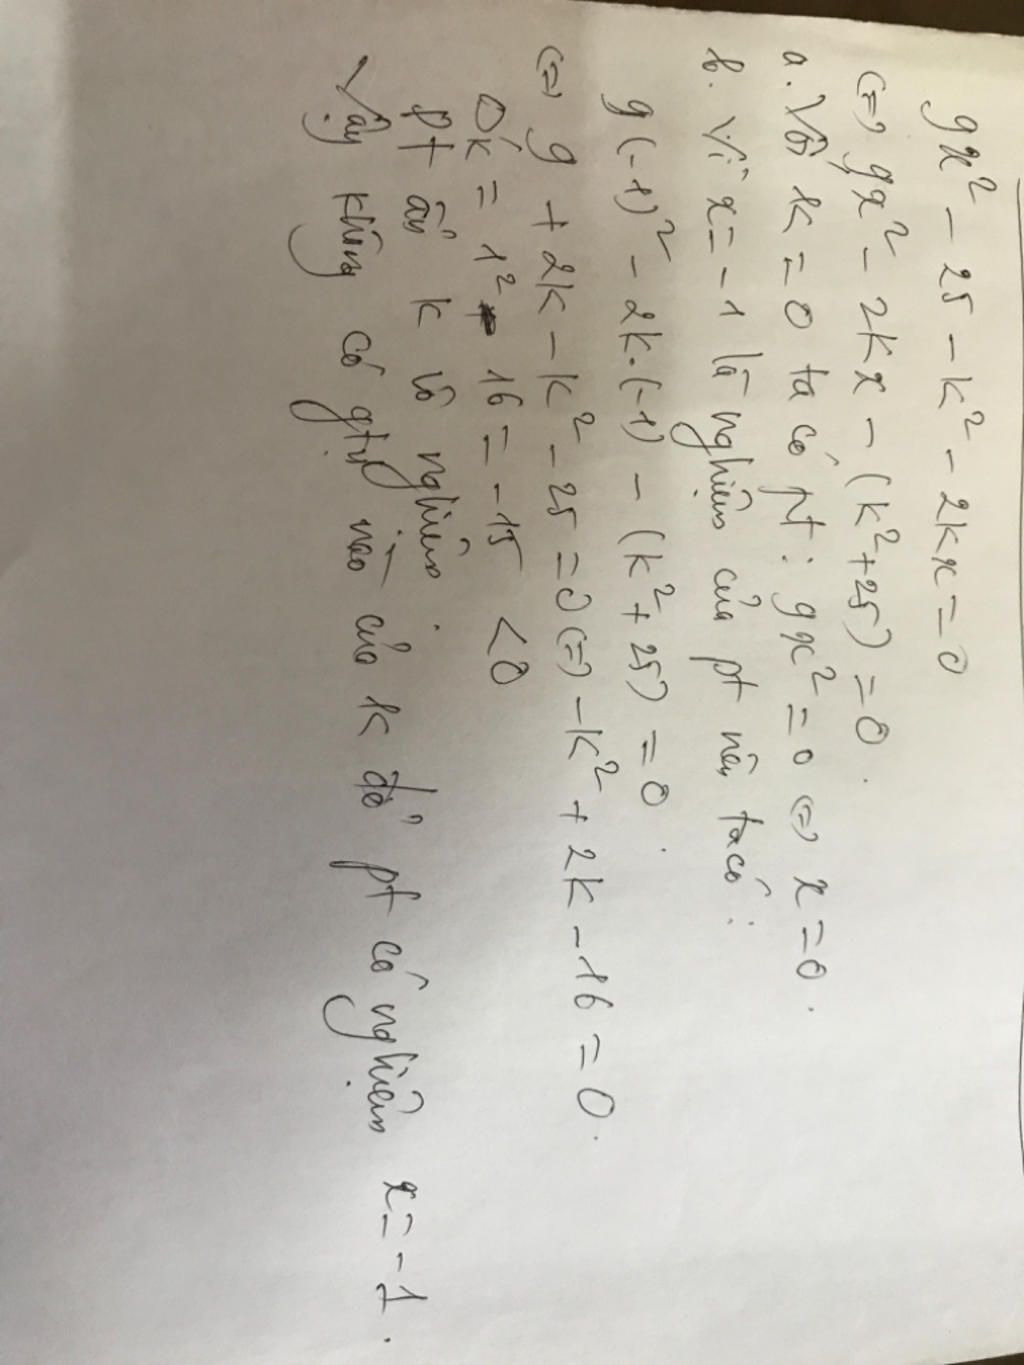 9x² - 25 - k² - 2kx = 0
(=) 9x² - 2kx - (k²+25) = 0.
a. Với k = 0 ta có pt: 9x² = 0 (=) x = 0.
b. Vì x = -1 là nghiệm của pt nên ta có:
9(-1)² - 2k.(-1) - (k²+25) = 0.
(=) 9 + 2k - k² - 25 = 0 (=) -k² + 2k - 16 = 0.
Δ'k = 1² - 16 = -15 < 0
pt ẩn k vô nghiệm.
Vậy không có gtrị nào của k để pt có nghiệm x = -1.